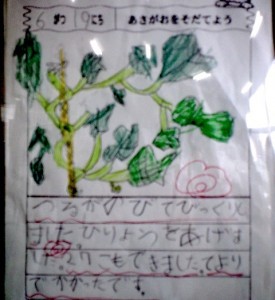 6がつ19にち
あさがおをそだてよう
つるがのびてびっくりし
ました。ひりょうをあげま
した。
こもできました。てより
でかかったです。